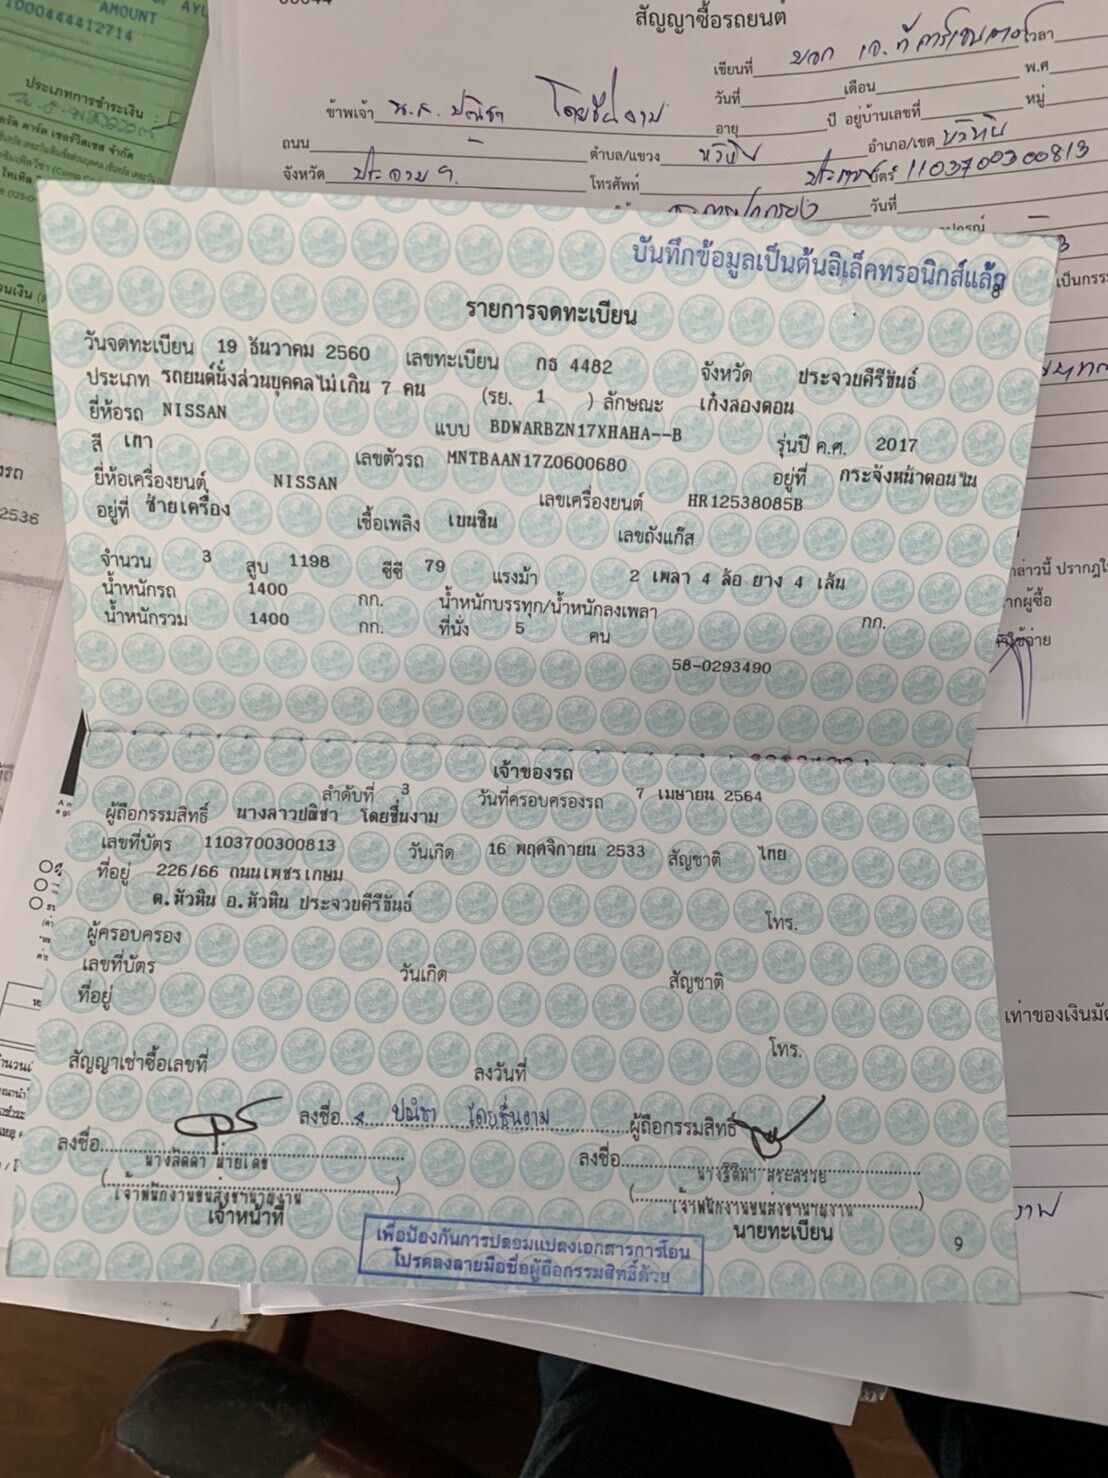 AMOUNT
1000444412714
ประเภทการชำระเงิน :
สัญญาซื้อรถยนต์
เขียนที่
เวลา
วันที่ เดือน พ.ศ
ข้าพเจ้า น.ส. ปณิชา โดยชื่นงาม อายุ ปี อยู่บ้านเลขที่ หมู่
ถนน - ตำบล/แขวง หัวหิน อำเภอ/เขต หัวหิน
จังหวัด ประจวบฯ โทรศัพท์ บัตร 1103700300813
วันที่
บันทึกข้อมูลเป็นต้นอิเล็คทรอนิกส์แล้ว
8
รายการจดทะเบียน
วันจดทะเบียน 19 ธันวาคม 2560 เลขทะเบียน กธ 4482 จังหวัด ประจวบคีรีขันธ์
ประเภท รถยนต์นั่งส่วนบุคคลไม่เกิน 7 คน (รย. 1 ) ลักษณะ เก๋งสองตอน
ยี่ห้อรถ NISSAN แบบ BDWARBZN17XHAHA--B รุ่นปี ค.ศ. 2017
สี เทา เลขตัวรถ MNTBAAN17Z0600680 อยู่ที่ กระจังหน้าตอนใน
ยี่ห้อเครื่องยนต์ NISSAN เลขเครื่องยนต์ HR12538085B
อยู่ที่ ซ้ายเครื่อง เชื้อเพลิง เบนซิน เลขถังแก๊ส
จำนวน 3 สูบ 1198 ซีซี 79 แรงม้า 2 เพลา 4 ล้อ ยาง 4 เส้น
น้ำหนักรถ 1400 กก. น้ำหนักบรรทุก/น้ำหนักลงเพลา กก.
น้ำหนักรวม 1400 กก. ที่นั่ง 5 คน
58-0293490
เจ้าของรถ
ลำดับที่ 3 วันที่ครอบครองรถ 7 เมษายน 2564
ผู้ถือกรรมสิทธิ์ นางสาวปณิชา โดยชื่นงาม
เลขที่บัตร 1103700300813 วันเกิด 16 พฤศจิกายน 2533 สัญชาติ ไทย
ที่อยู่ 226/66 ถนนเพชรเกษม
ต.หัวหิน อ.หัวหิน ประจวบคีรีขันธ์ โทร.
ผู้ครอบครอง
เลขที่บัตร วันเกิด สัญชาติ
ที่อยู่
โทร.
สัญญาเช่าซื้อเลขที่ ลงวันที่
ลงชื่อ ปณิชา โดยชื่นงาม ผู้ถือกรรมสิทธิ์
ลงชื่อ ลงชื่อ
(เจ้าพนักงานขนส่งชำนาญงาน) (เจ้าพนักงานขนส่งชำนาญงาน)
เจ้าหน้าที่ นายทะเบียน
9
เพื่อป้องกันการปลอมแปลงเอกสารการโอน
โปรดลงลายมือชื่อผู้ถือกรรมสิทธิ์ด้วย
2536
เป็นกรร
ล่าวนี้ ปรากฏใ
ากผู้ซื้อ
เท่าของเงินมัด